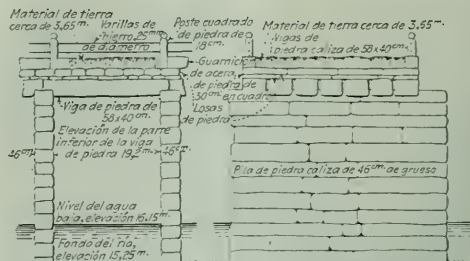 Material de tierra
cerca de 3,65 m.
Varillas de
hierro, 25 mm
de diámetro
Poste cuadrado
de piedra de
18 cm.
Material de tierra cerca de 3,65 m.
Vigas de
piedra caliza de 58x40 cm.
Guarnición
de acera,
de piedra de
30 cm. en cuadro
Losas
de piedra
Viga de piedra de
58x40 cm.
Elevación de la parte
inferior de la viga
de piedra
46 cm
46 cm.
Pila de piedra caliza de 46 cm. de grueso
Nivel del agua
baja, elevación 16,15 m.
Fondo del río,
elevación 15,25 m.